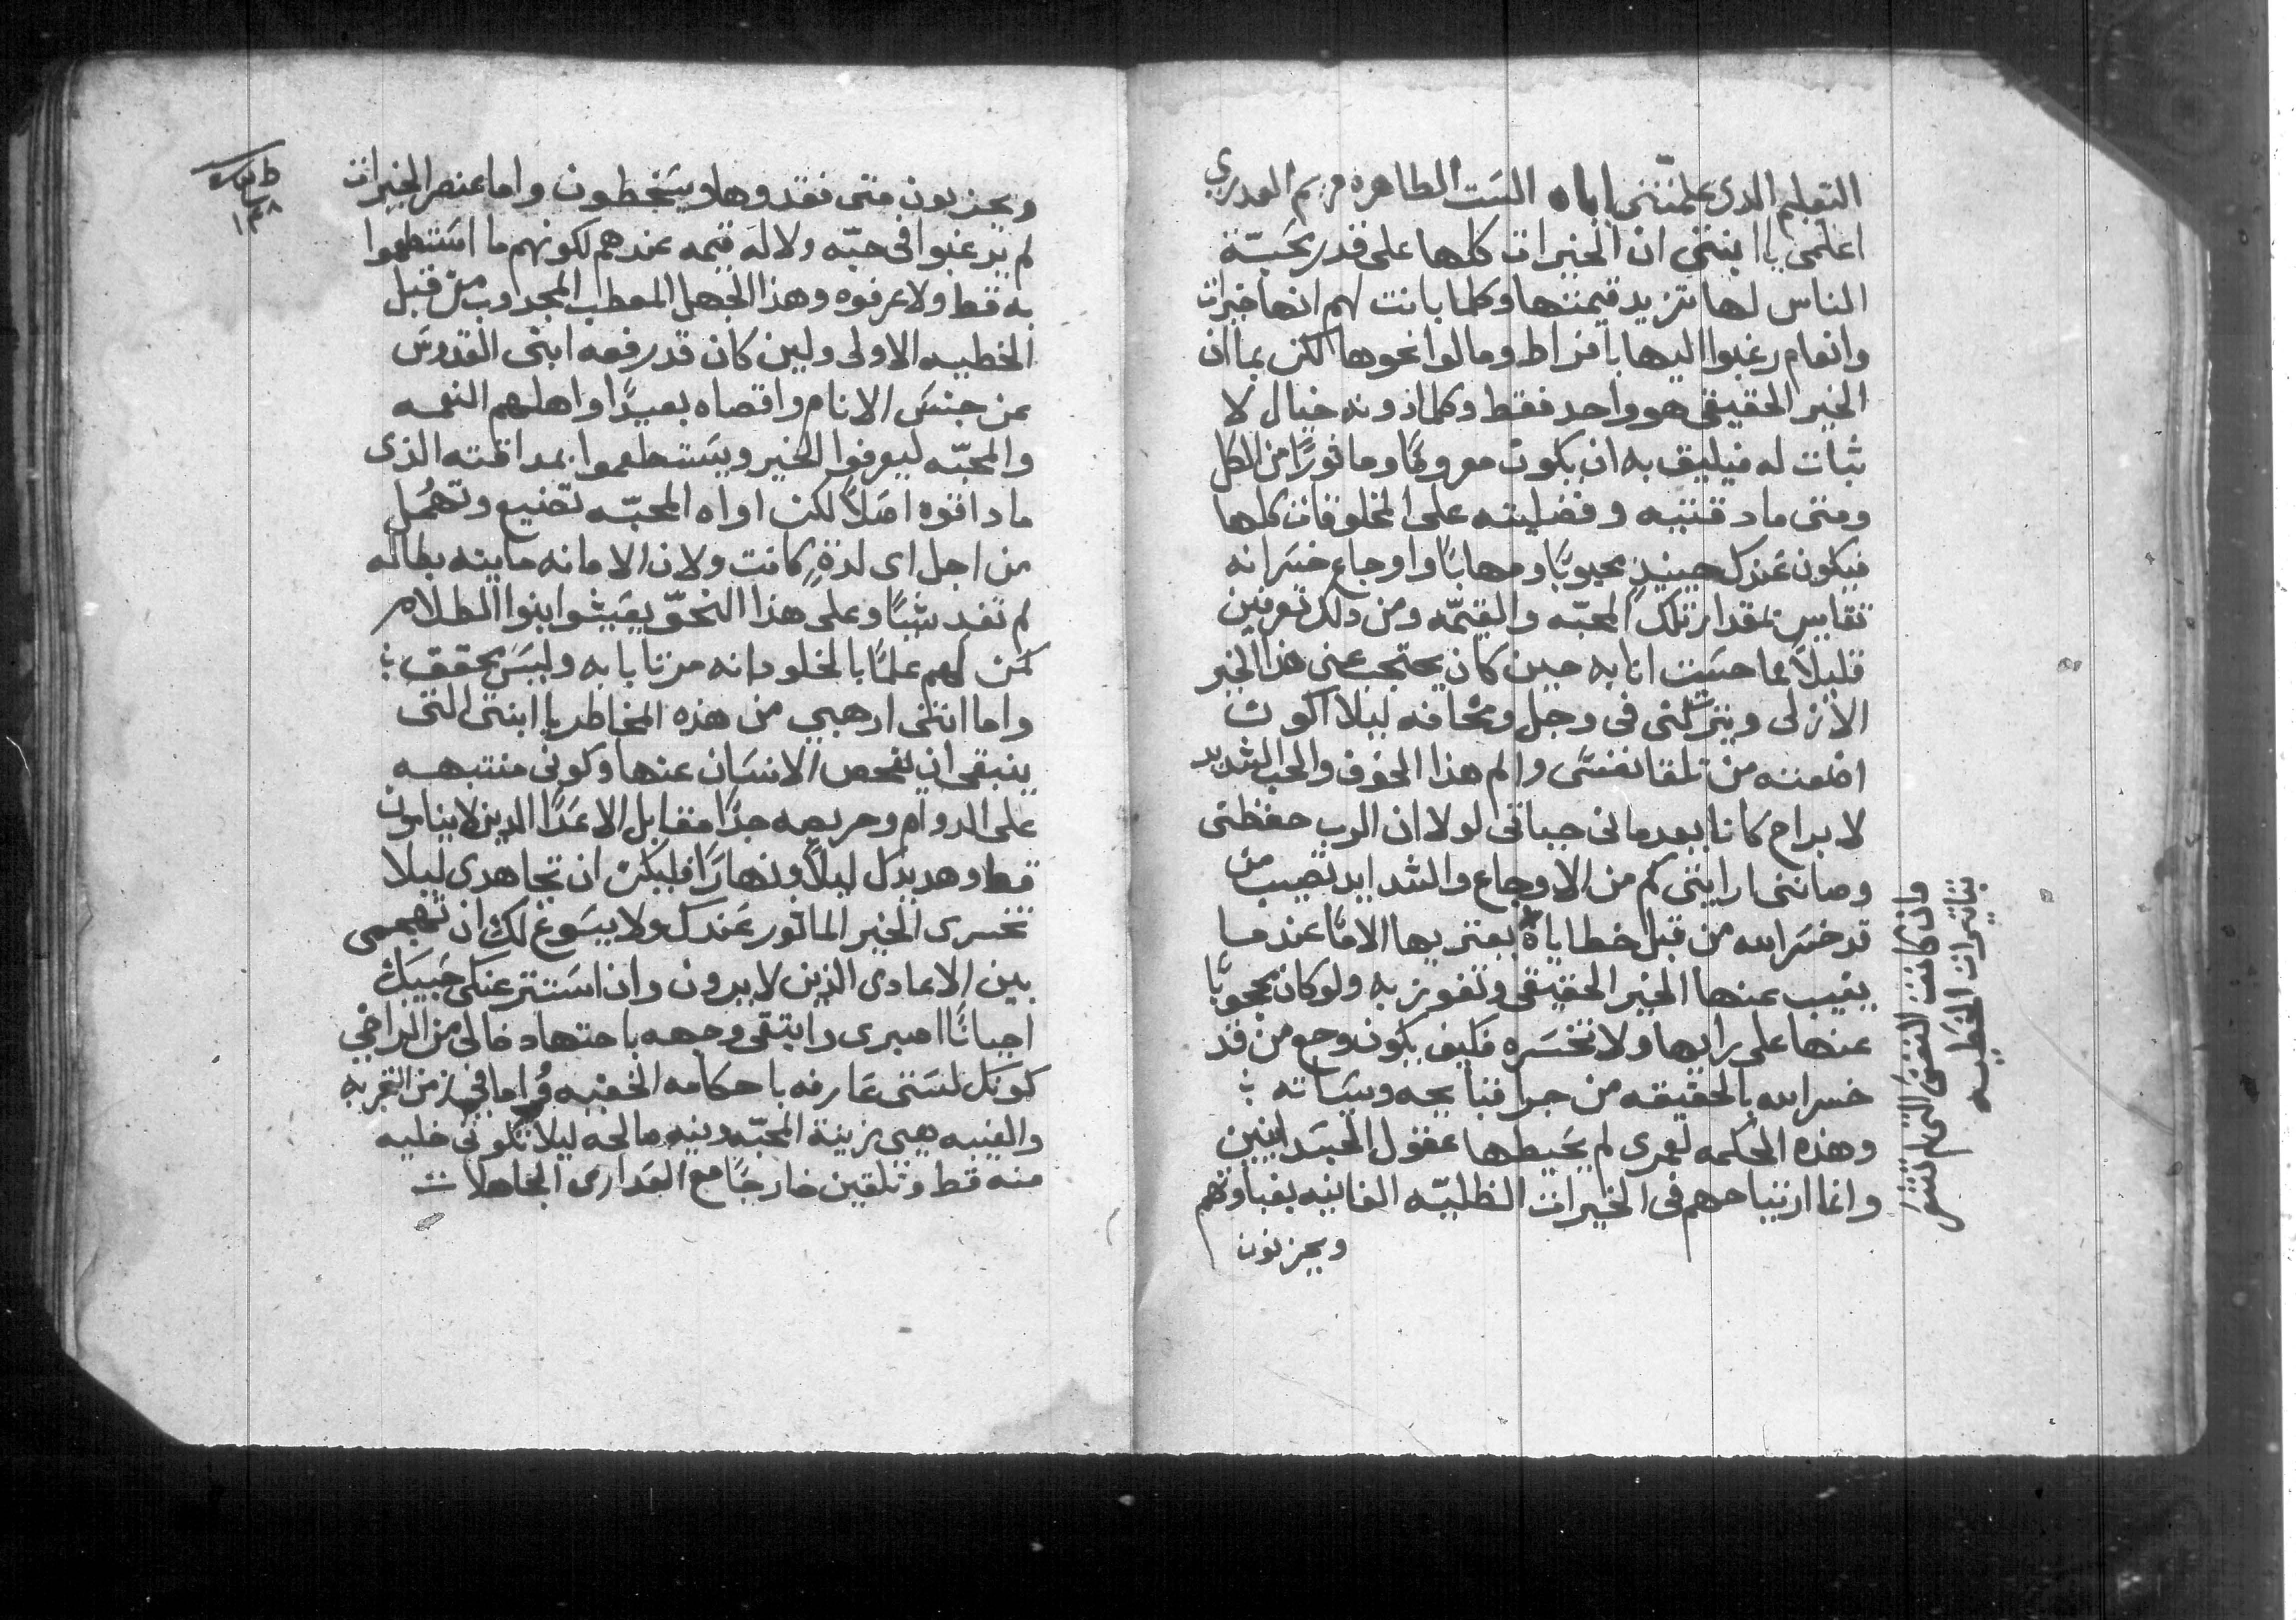 التعليم الدى علمتنى اياه الست الطاهره مريم العدرى
اعلمى يا ابنتى ان الخيرات كلها على قدر محبّة
الناس لها تزيد قيمتها وكلما بانت لهم انها خيرات
وانعام رغبوا اليها بافراط ومالوا نحوها لكن بما ان
الخير الحقيقى هو واحد فقط وكلما دونه خيال لا
ثبات له فيليق به ان يكون معروفًا وماثورًا من الكل
ومتى ما دقتيه وفضليته على المخلوقات كلها
فيكون عندك حينيذٍ محبوبًا ومهابًا واوجاع خسرانه
تقايس بمقدار تلك المحبّه والقيمّه ومن دلك تعرفين
قليلاً بما حسيت انا به حين كان يحتجب عنى هذا الخير
الازلى ويتركنى فى وجل ومخافه ليلا اكون
اضعته من تلقا نفسى والم هذا الخوف والحب الشديد
لا براح كانا يعدمانى حياتى لولا ان الرب حفظنى
وصاننى ارايتى كم من الاوجاع والشدايد تصيب من
قد خسر الله من قبل خطاياه يعتريها الامًا عندما
يغيب عنها الخير الحقيقى وتفوز به ولو كان محجوبًا
عنها على رايها ولا تخسره فكيف يكون وجع من قد
خسر الله بالحقيقه من جرا قبايحه وسياته ؛
وهذه الحكمه لعمرى لم يحيطها عقول الجسدانيين
وانما ارتياحهم فى الخيرات الظليّه الفانيه بغباوتهم
ويحزنون
وان كانت النفس التى لم تشعر
بتاتيرات الخطيه
ويحزنون متى فقدوها ويسخطون واما عنصر الخيرات
لم يرغبوا فى حبّه ولا له قيمه عندهم لكونهم ما استطعموا
به قط ولا عرفوه وهذا الجهل المعطب المجدوب من قبل
الخطيه الاولى ولين كان قد رفعه ابنى القدوس
عن جنس الانام واقصاه بعيدًا واهلهم النعمه
والمحبّه ليعرفوا الخير ويستطعموا بمداقته الذى
ما داقوه اصلاً لكن اواه المحبّه تضيع وتهمل
من اجل اى لدةٍ كانت ولان الامانه مايته بطاله
لم تفد شيًا وعلى هذا النحوّ يعيشوا بنوا الظلام
كمن لهم علمًا بالخلود انه مرتابا به وليس محقق ؛
واما انتى ارهبي من هذه المخاطر يا ابنتى التى
ينبغى ان يفحص الانسان عنها وكونى منتبهه
على الدوام وحريصه جدًا مقابل الاعدا الدين لا يناموت
قط وهديدك ليلاً ونهارًا فليكن ان تجاهدى ليلا
تخسرى الخير الماثور عندك ولا يسوغ لك ان تهجمى
بين الاعادى الذين لا يرون وان استتر عنكى حبيبك
احيانًا اصبرى وابتغى وجهه باجتهاد خالى من التراخي
كونك لستى عارفه باحكامه الخفيه فراما فى زمن الغربه
والغيبه هيى زينة المحبّه ونيه صالحه ليلا تكونى خليه
منه قط وتلقين خارجًا مع العدارى الجاهلات
١٣٨